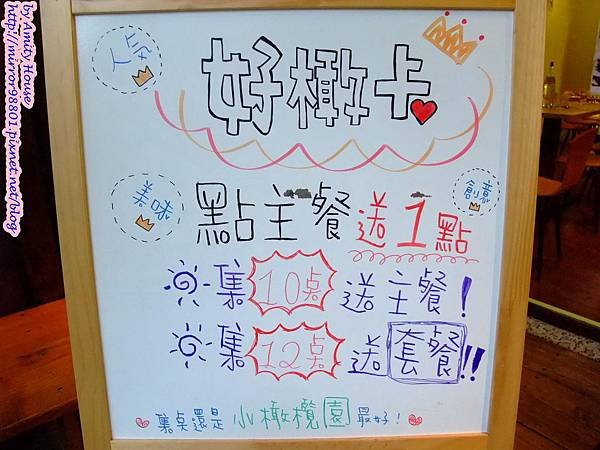 by Amity House
http://mirror98801.pixnet.net/blog
人氣
好橄卡
美味
創意
點主餐送1點
集10點送主餐!
集12點送套餐!!
集點還是小橄欖園最好!